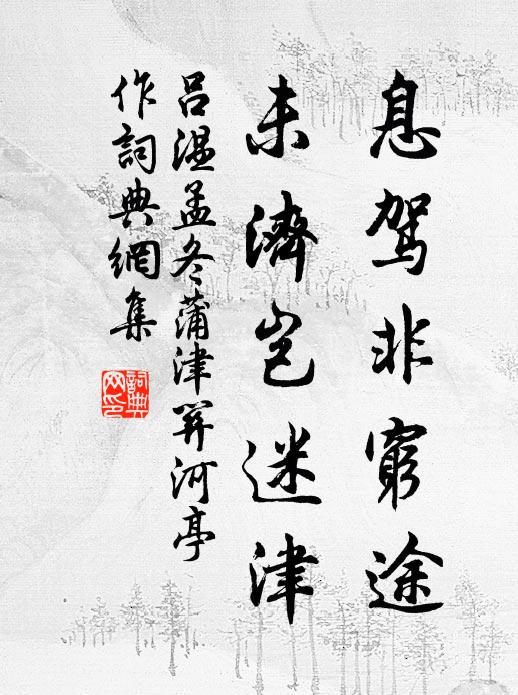 息駕非窮途
未濟豈迷津
呂溫孟冬蒲津關河亭
作詞典網集
詞典網印